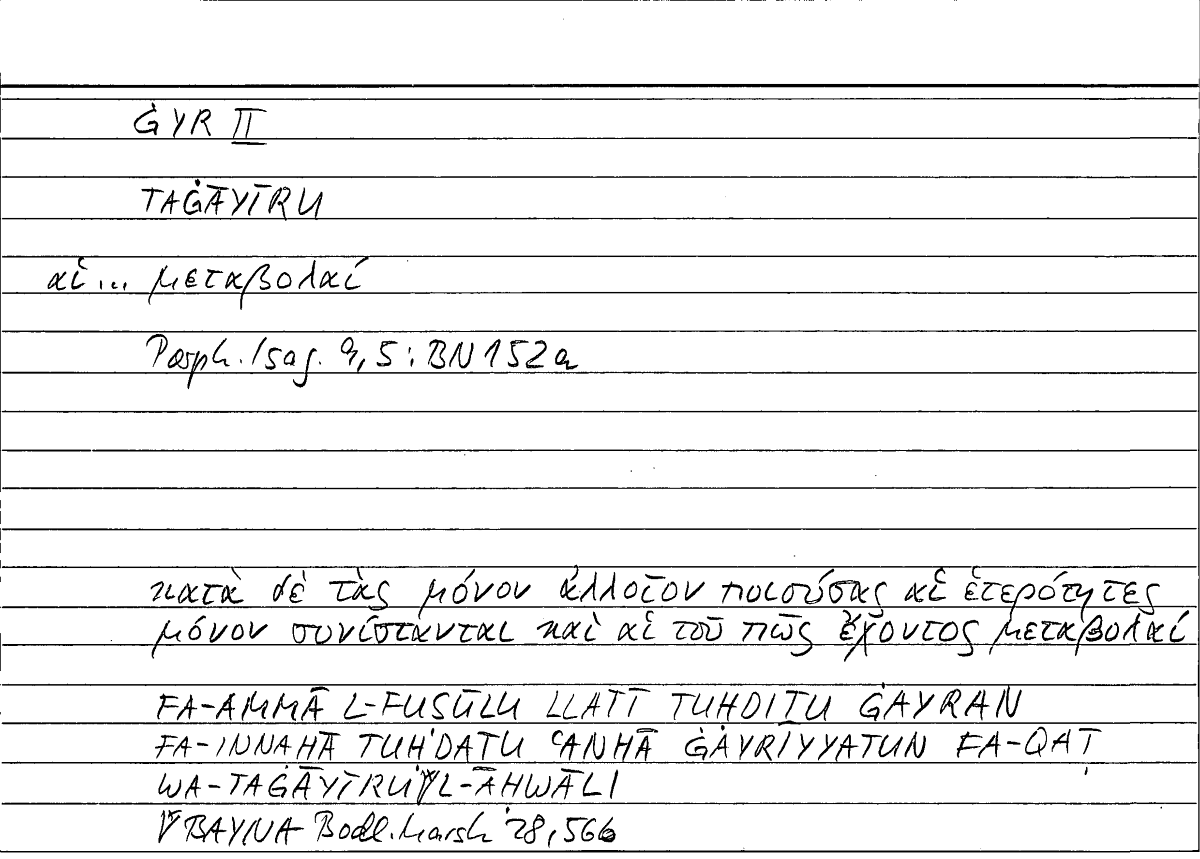 ĠYR II
TAĠĀYĪRU
αἱ ... μεταβολαί
Porph. Isag. 9,5 : BN 152a
κατὰ δὲ τὰς μόνον ἀλλοῖον ποιούσας αἱ ἑτερότητες
μόνον συνίστανται καὶ αἱ τοῦ πῶς ἔχοντος μεταβολαί
FA-AMMĀ L-FUSŪLU LLATĪ TUHDITU ĠAYRAN
FA-INNAHĀ TUHDATU ʿANHĀ ĠAYRĪYYATUN FA-QAṬ
WA-TAĠĀYĪRU ꜛL-AHWĀLI
ꜛBAYNA Bodl. Marsh 28, 566